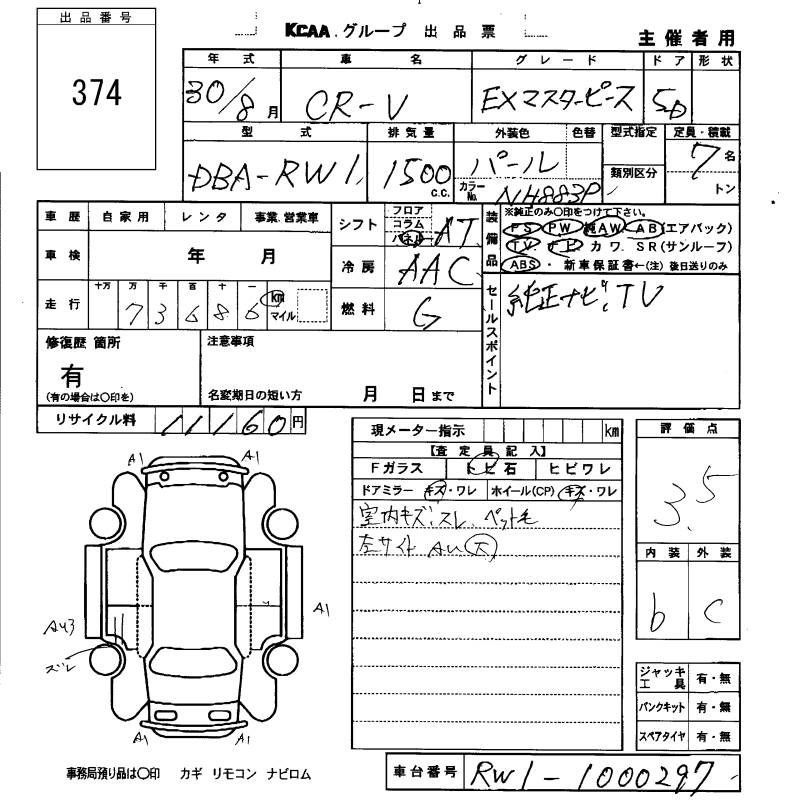 出品番号
374
KCAA.グループ 出品票
主催者用
年式 車名 グレード ドア 形状
30/8月 CR-V EXマスターピース 5D
型式 排気量 外装色 色替 型式指定 定員・積載
DBA-RW1 1500 c.c. パール 類別区分 7名
カラーNo. NH883P トン
車歴 自家用 レンタ 事業.営業車
シフト フロア コラム パネル AT
装備品
※純正のみ〇印をつけて下さい。
PS PW 純AW AB(エアバック)
TV. ナビ カワ. SR(サンルーフ)
ABS・新車保証書←(注) 後日送りのみ
車検 年 月
冷房 AAC
走行 十万 万 千 百 十 一
73686 km マイル
燃料 G
セールスポイント
純正ナビ、TV
修復歴 箇所
有
(有の場合は〇印を)
注意事項
名変期日の短い方 月 日まで
リサイクル料 11160円
現メーター指示 km
【査定員記入】
Fガラス トビ石 ヒビワレ
ドアミラー キズ・ワレ ホイール(CP) キズ・ワレ
室内キズ、スレ、ペット毛
左サイド AU大
評価点
3.5
内装 外装
b C
A1 A1
A1
AU3
ズレ
A1 A1
ジャッキ工具 有・無
パンクキット 有・無
スペアタイヤ 有・無
事務局預り品は〇印 カギ リモコン ナビロム
車台番号 RW1-1000297